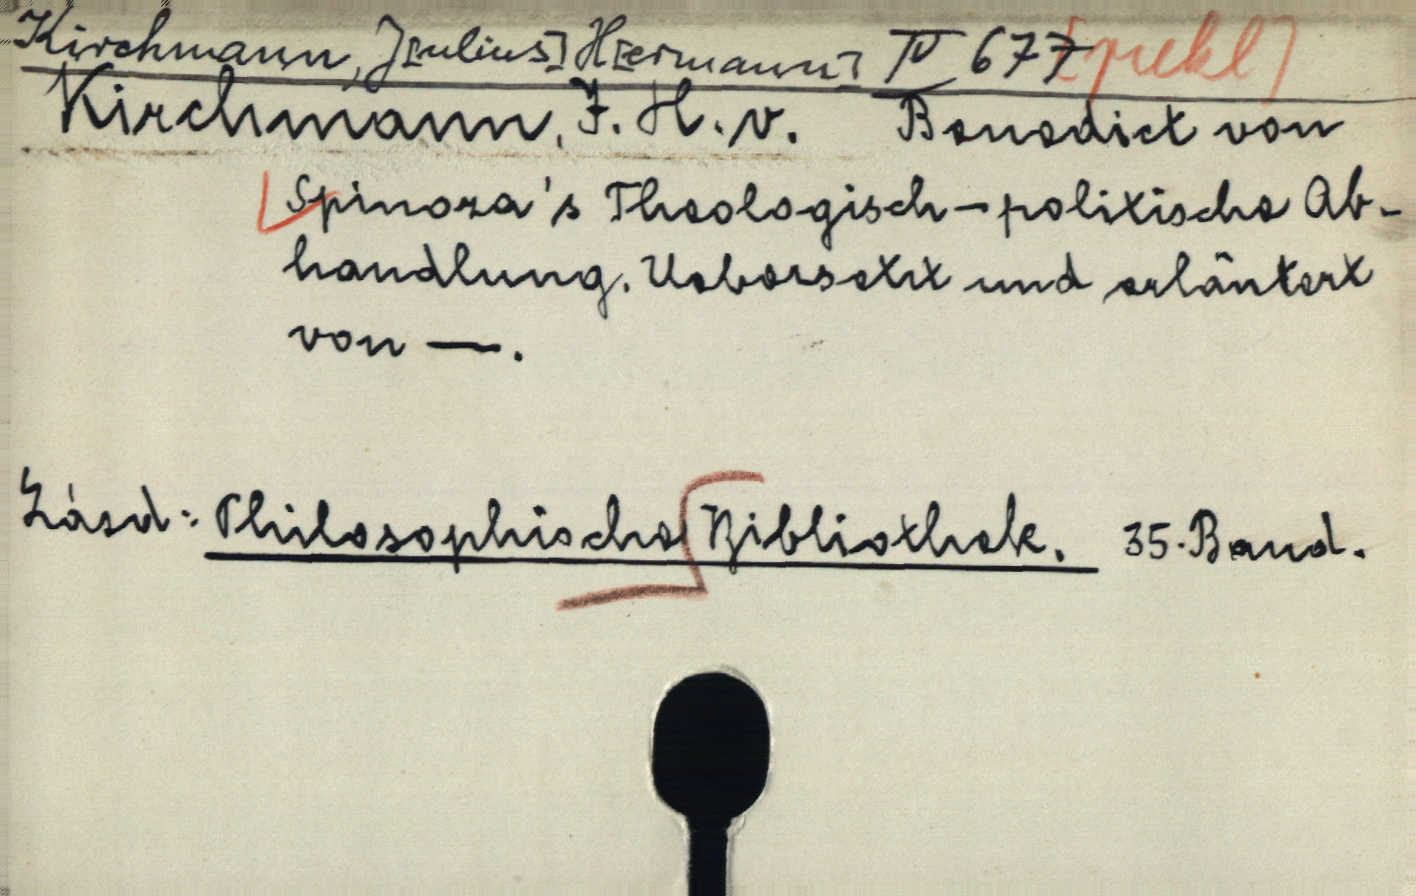 Kirchmann, J[ulius] H[ermann] IV 677 [prekl]
Kirchmann, J. H. v. Benedict von
Spinoza's Theologisch-politische Ab-
handlung. Uebersetzt und erläutert
von —.
Lásd: Philosophische Bibliothek. 35. Band.